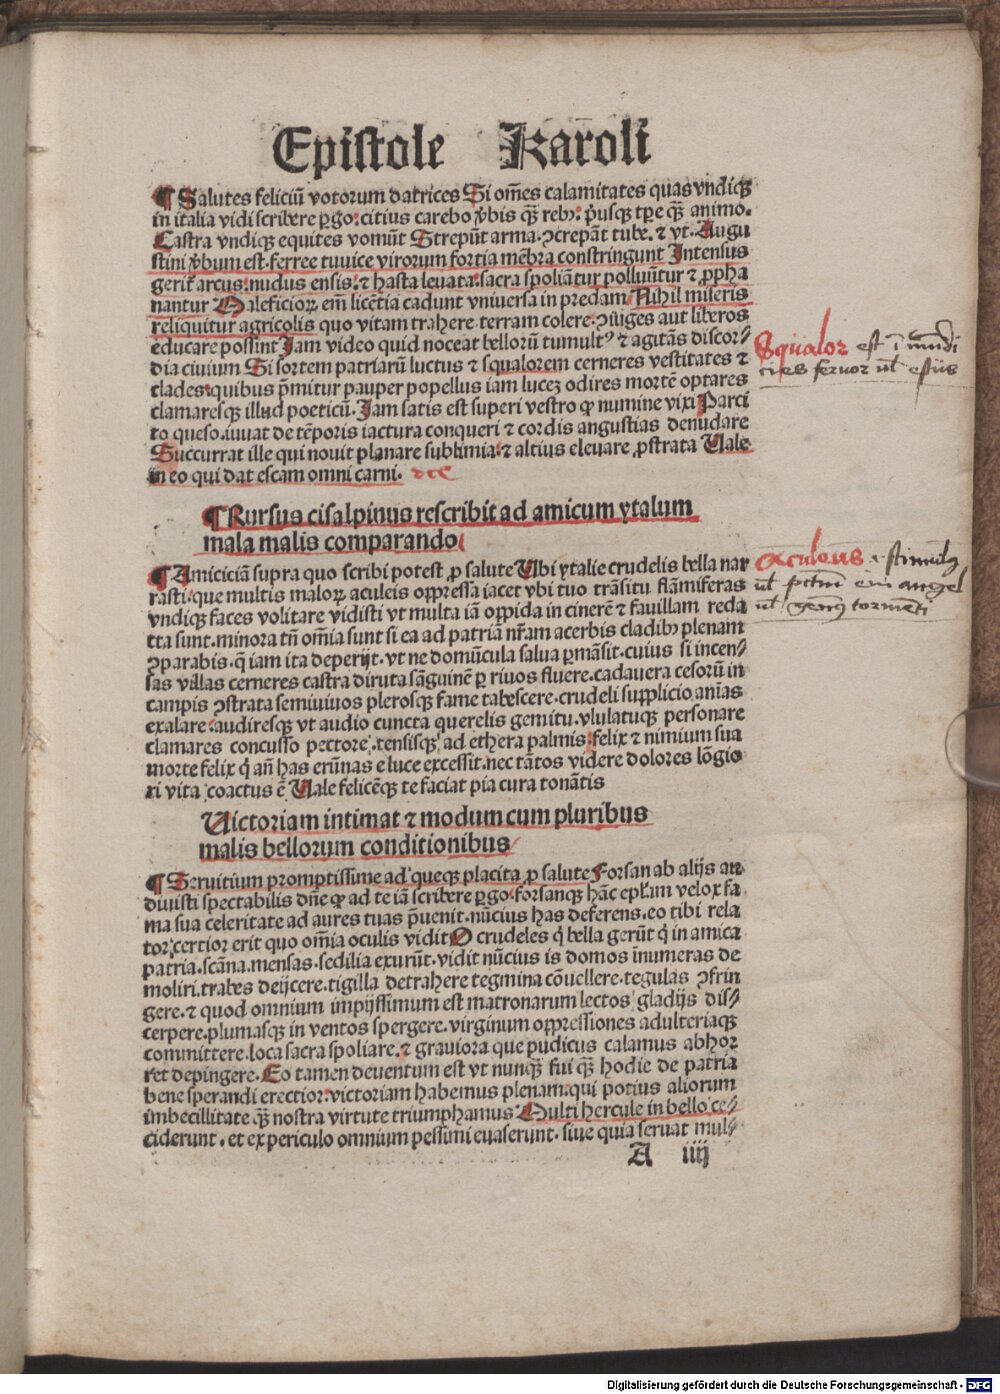 Epistole Karoli
¶ Salutes feliciū votorum datrices Si om̄es calamitates quas vndiqꝫ
in italia vidi scribere ꝑgo: citius carebo v̄bis qꝫ̄ rebꝫ: pꝰusqꝫ tꝑe qꝫ̄ animo.
Castra vndiqꝫ equites vomūt Strepūt arma. ꝯcrepāt tube. ⁊ vt. Augu
stini v̄bum est. ferree tuuice virorum fortia mēbra constringunt Intensus
gerit᷑ arcus: nudus ensis: ⁊ hasta leuata: sacra spoliātur polluūtur ⁊ ꝓpha
nantur Maleficioꝝ em̄ licētia cadunt vniuersa in predam Nihil miseris
reliquitur agricolis quo vitam trahere. terram colere. ꝯiūges aut liberos
educare possint Jam video quid noceat bellorū tumultꝰ ⁊ agitās discor⸗
dia ciuium Si sortem patriarū luctus ⁊ squalorem cerneres vestitates ⁊
clades: quibus p̄mitur pauper popellus iam lucez odires mortē optares
clamaresqꝫ illud poeticū. Jam satis est superi vestro ꝙ numine vixi Parci
to queso. iuuat de tēporis iactura conqueri ⁊ cordis angustias denudare
Succurrat ille qui nouit planare sublimia: ⁊ altius eleuare ꝓstrata Vale
in eo qui dat escam omni carni.
¶ Rursus cisalpinus rescribit ad amicum ytalum
mala malis comparando
¶ Amiciciā supra quo scribi potest ꝓ salute Vbi ytalie crudelis bella nar
rasti: que multis maloꝝ aculeis opp̄ressa iacet vbi tuo trāsitu flāmiferas
vndiqꝫ faces volitare vidisti vt multa iā oppida in cinerē ⁊ fauillam reda
cta sunt. minora tn̄ om̄ia sunt si ea ad patriā nr̄am acerbis cladibꝫ plenam
ꝯparabis. q̄ iam ita deperijt. vt ne domūcula salua ꝑmāsit. cuius si incen⸗
sas villas cerneres castra diruta sāguinē ꝑ riuos fluere. cadauera cesorū in
campis ꝯstrata semiuiuos plerosqꝫ fame tabescere. crudeli supplicio anīas
exalare: audiresqꝫ vt audio cuncta querelis gemitu. vlulatuqꝫ personare
clamares concusso pectore. tensisqꝫ ad ethera palmis: felix ⁊ nimium sua
morte felix q̇ an̄ has erūnas e luce excessit. nec tātos videre dolores lōgio
ri vita coactus ē Vale felicēqꝫ te faciat pia cura tonātis
Victoriam intimat ⁊ modum cum pluribus
malis bellorum conditionibus
¶ Seruitium promptissime ad queqꝫ placita ꝓ salute Forsan ab alijs au
diuisti spectabilis dn̄e ꝙ ad te iā scribere ꝑgo. forsanqꝫ hāc ep̄lam velox fa
ma sua celeritate ad aures tuas p̄uenit. nūcius has deferens. eo tibi rela
tor certior erit quo om̄ia oculis vidit O crudeles q̇ bella gerūt q̇ in amica
patria. scāna. mensas. sedilia exurūt. vidit nūcius is domos īnumeras de
moliri. trabes deijcere. tigilla detrahere tegmina cōuellere. tegulas ꝯfrin
gere. ⁊ quod omnium impijssimum est matronarum lectos gladijs dis⸗
cerpere. plumasqꝫ in ventos spergere. virginum oppressiones adulteriaqꝫ
committere. loca sacra spoliare. ⁊ grauiora que pudicus calamus abhor
ret depingere. Eo tamen deuentum est vt nunqꝫ̄ fui qꝫ̄ hodie de patria
bene sperandi erectior: victoriam habemus plenam. qui potius aliorum
imbecillitate qꝫ̄ nostra virtute triumphamus Multi hercule in bello ce⸗
ciderunt. et ex periculo omnium pessimi euaserunt. siue quia seruat mul⸗
A iiij
Squalor est īmundi
cies feruor ul̄ estus
Aculeus .i. stimulꝰ
ul̄ genꝰ tormēti
Digitalisierung gefördert durch die Deutsche Forschungsgemeinschaft - DFG